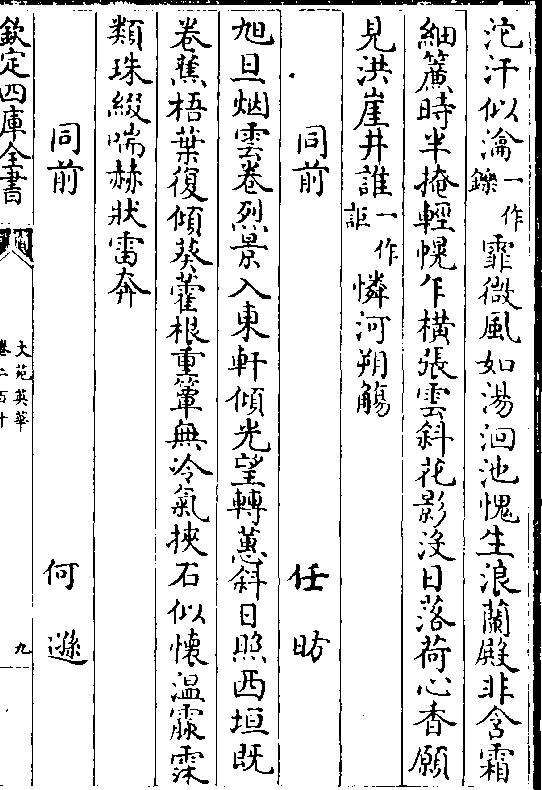 沱汗似瀹一作鑠霏微風如湯洄池愧生浪蘭殿非含霜
細簾時半掩輕幌乍横張雲斜花影沒日落荷心香願
見洪崖井誰一作詎憐河朔觴
同前 任昉
旭旦烟雲卷烈景入東軒傾光望轉蕙斜日照西垣既
卷蕉梧葉復傾葵藿根重簟無冷氣挾石似懷温霡霂
類珠綴喘赫狀雷奔
同前 何遜
欽定四庫全書 文苑英華 卷二百十 九